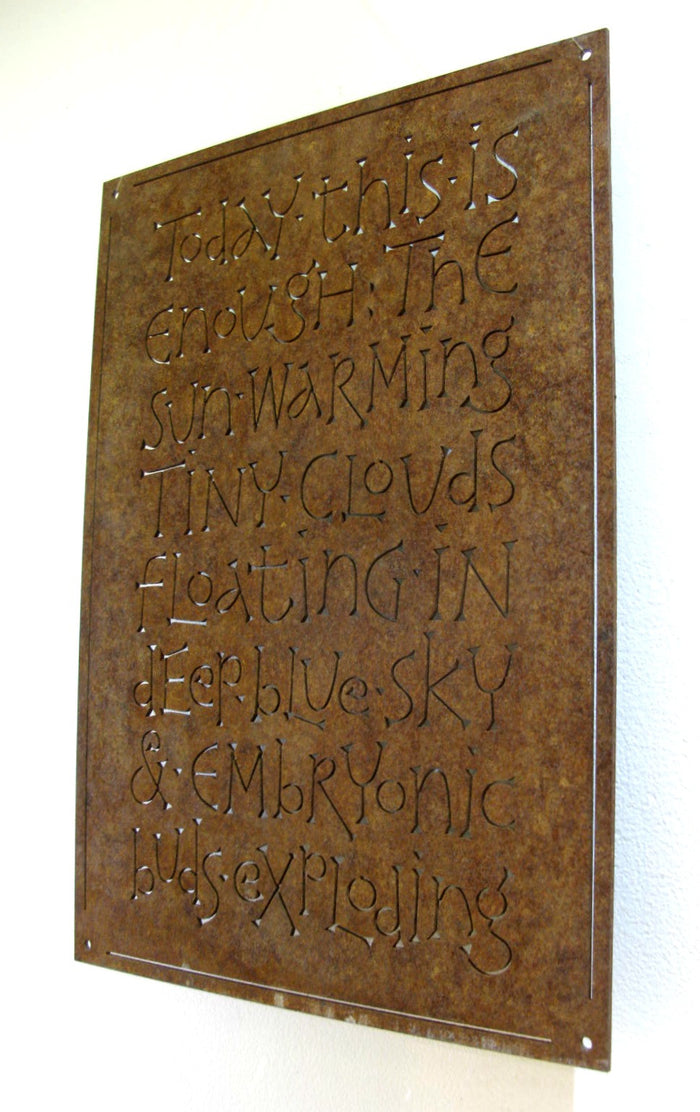 Today·this·is
ENOUgH: ThE
sun·WaRMing
TiNY·CLoUdS
fLoatinG·iN
dEep·bLUe·SkY
&·EMbRYonic
buds·eXpLoding